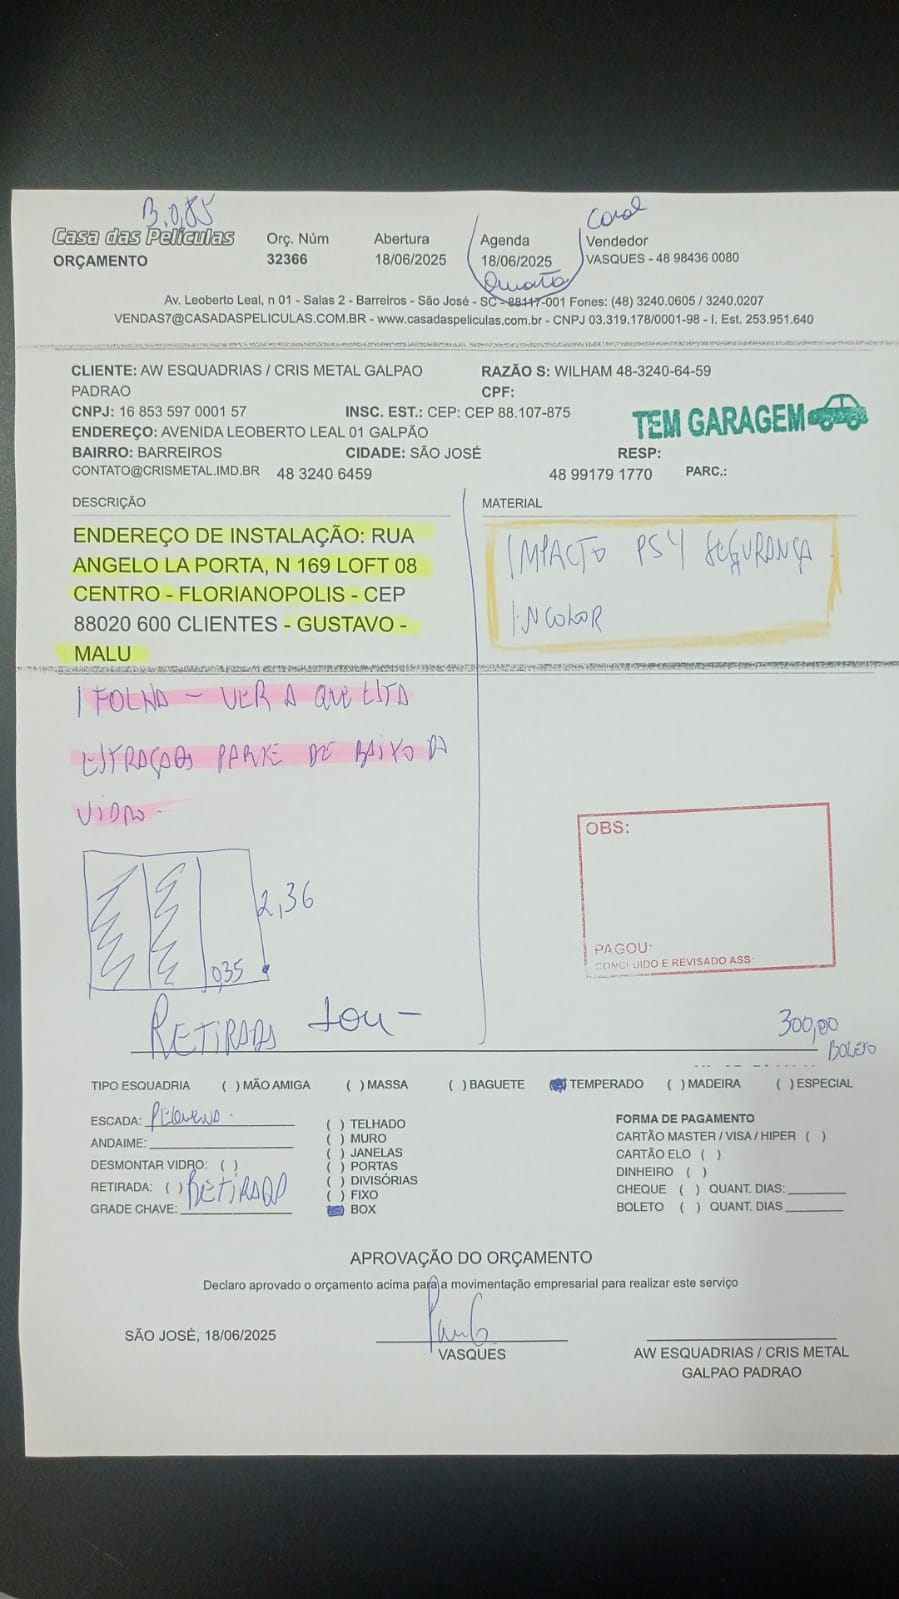 B.0,85
Casa das Películas
ORÇAMENTO
Orç. Núm
32366
Abertura
18/06/2025
Agenda
18/06/2025
Quarta
Vendedor
VASQUES - 48 98436 0080
Av. Leoberto Leal, n 01 - Salas 2 - Barreiros - São José - SC - 88117-001 Fones: (48) 3240.0605 / 3240.0207
VENDAS7@CASADASPELICULAS.COM.BR - www.casadaspeliculas.com.br - CNPJ 03.319.178/0001-98 - I. Est. 253.951.640
CLIENTE: AW ESQUADRIAS / CRIS METAL GALPAO
PADRAO
RAZÃO S: WILHAM 48-3240-64-59
CPF:
CNPJ: 16 853 597 0001 57 INSC. EST.: CEP: CEP 88.107-875
ENDEREÇO: AVENIDA LEOBERTO LEAL 01 GALPÃO
TEM GARAGEM
BAIRRO: BARREIROS CIDADE: SÃO JOSÉ RESP:
CONTATO@CRISMETAL.IMD.BR 48 3240 6459 48 99179 1770 PARC.:
DESCRIÇÃO
ENDEREÇO DE INSTALAÇÃO: RUA
ANGELO LA PORTA, N 169 LOFT 08
CENTRO - FLORIANOPOLIS - CEP
88020 600 CLIENTES - GUSTAVO -
MALU
MATERIAL
IMPACTO PS4 SEGURANÇA
INCOLOR
1 FOLHA - VER A QUE ESTA
PARTE DE BAIXO DO
VIDRO.
2,36
0,35
OBS:
PAGOU:
CONCLUIDO E REVISADO ASS:
RETIRADA
300,00
BOLETO
TIPO ESQUADRIA ( ) MÃO AMIGA ( ) MASSA ( ) BAGUETE TEMPERADO ( ) MADEIRA ( ) ESPECIAL
ESCADA: PEQUENA.
ANDAIME:
DESMONTAR VIDRO: ( )
RETIRADA: ( ) RETIRADA
GRADE CHAVE:
( ) TELHADO
( ) MURO
( ) JANELAS
( ) PORTAS
( ) DIVISÓRIAS
( ) FIXO
BOX
FORMA DE PAGAMENTO
CARTÃO MASTER / VISA / HIPER ( )
CARTÃO ELO ( )
DINHEIRO ( )
CHEQUE ( ) QUANT. DIAS:
BOLETO ( ) QUANT. DIAS
APROVAÇÃO DO ORÇAMENTO
Declaro aprovado o orçamento acima para a movimentação empresarial para realizar este serviço
SÃO JOSÉ, 18/06/2025
VASQUES
AW ESQUADRIAS / CRIS METAL
GALPAO PADRAO